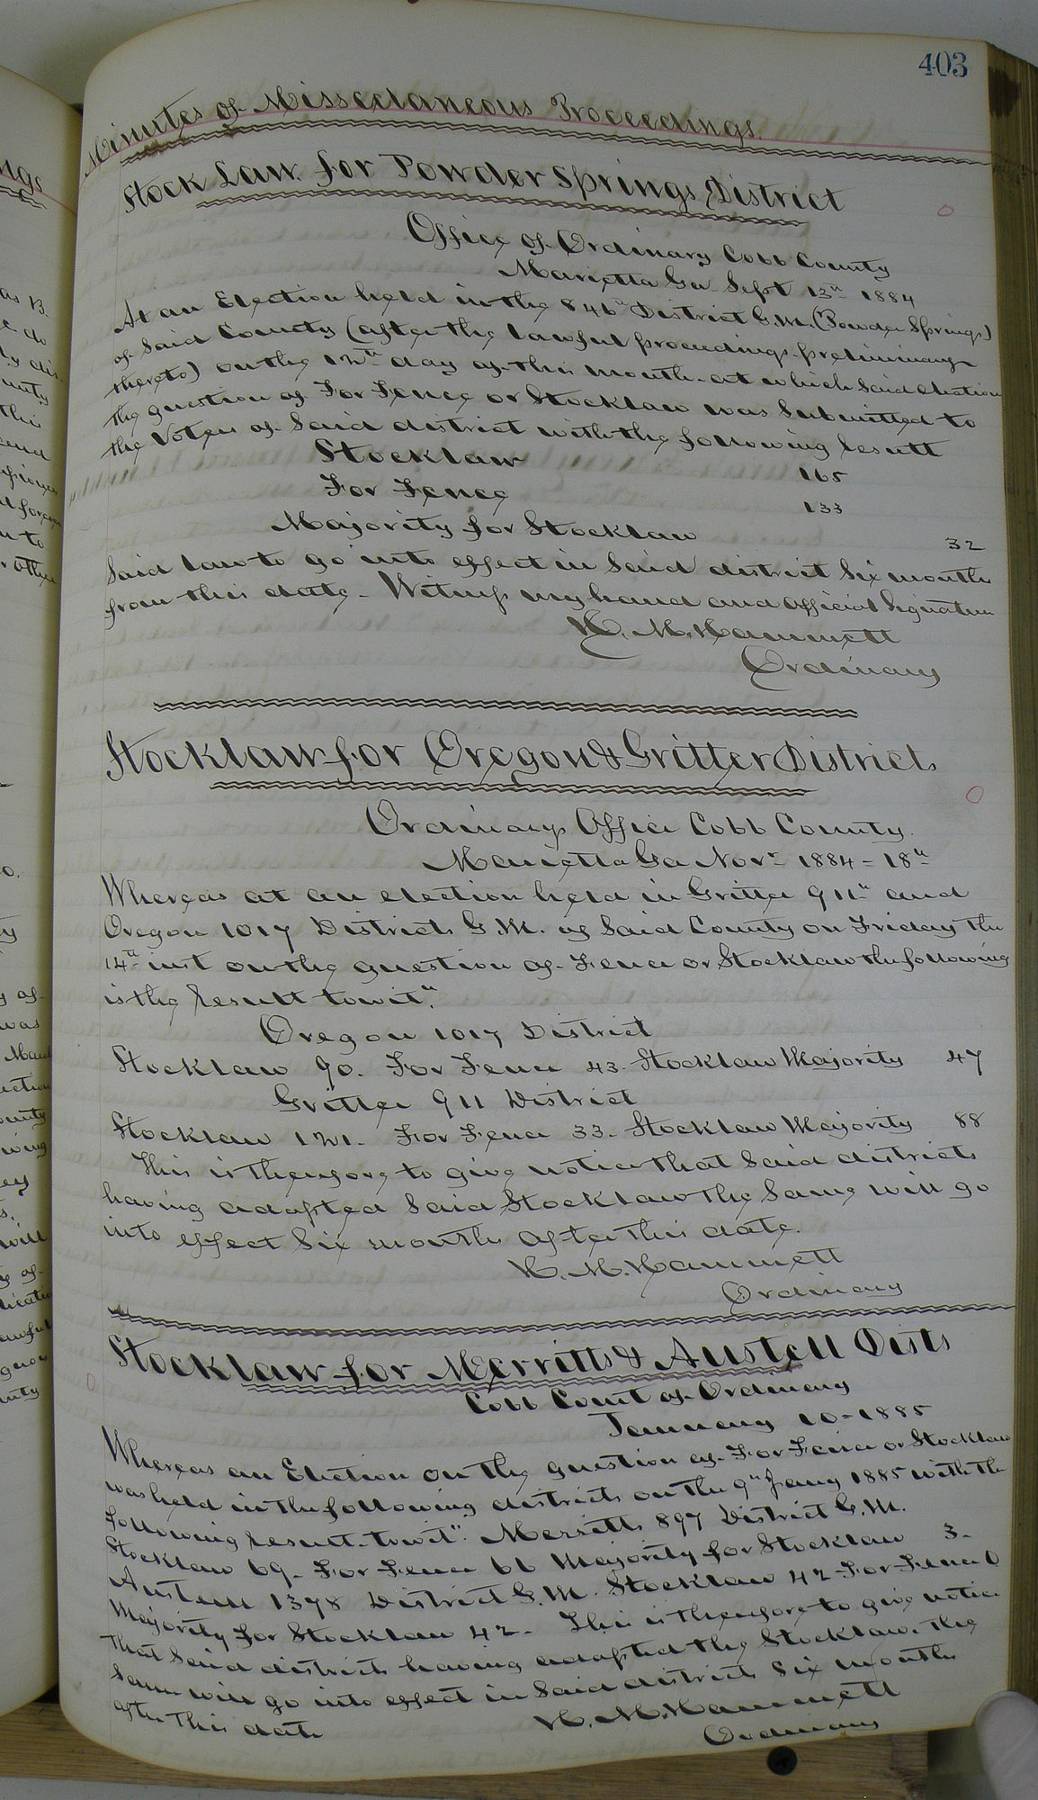 403
Minutes of Missedaneous Proceedings.
Stock Law. for Powder Springs District
Office of Ordinary Cobb County
Marietta Ga Sept 13th 1884
At an Election held in the 846th District G.M. (Powder Springs)
of Said County (after the lawful proceedings preliminary
thereto) on the 12th day of this month. at which Said election
the question of For Fence or Stocklaw was Submitted to
the Voters of Said district with the following result
Stocklaw 165
For Fence 133
Majority for Stocklaw 32
Said law to go into effect in Said district Six months
from this date. Witness my hand and official Signature
H. M. Hammett
Ordinary
Stocklaw for Oregon & Gritter Districts
Ordinarys Office Cobb County.
Marietta Ga Novr 1884 - 18th
Whereas at an election held in Gritter 911th and
Oregon 1017 Districts G.M. of Said County on Friday the
14th inst on the question of Fence or Stocklaw the following
is the result towit"
Oregon 1017 District
Stocklaw 90. For Fence 43. Stocklaw Majority 47
Gritter 911 District
Stocklaw 121. For Fence 33. Stocklaw Majority 88
This is therefore to give notice that Said districts
having adopted Said Stocklaw the Same will go
into effect Six months after this date.
H. M. Hammett
Ordinary
Stocklaw for Merritts & Austell Dists
Cobb Court of Ordinary
January 10 - 1885
Whereas an Election on the question of For Fence or Stocklaw
was held in the following districts on the 9th Jany 1885 with the
following result. towit": Merritts 897 District G.M.
Stocklaw 69. For Fence 66 Majority for Stocklaw 3.
Austell 1378 District G.M. Stocklaw 42 For Fence 0
Majority for Stocklaw 42. This is therefore to give notice
that Said districts having adopted the Stocklaw. the
Same will go into effect in Said districts Six months
after this date
H. M. Hammett
Ordinary